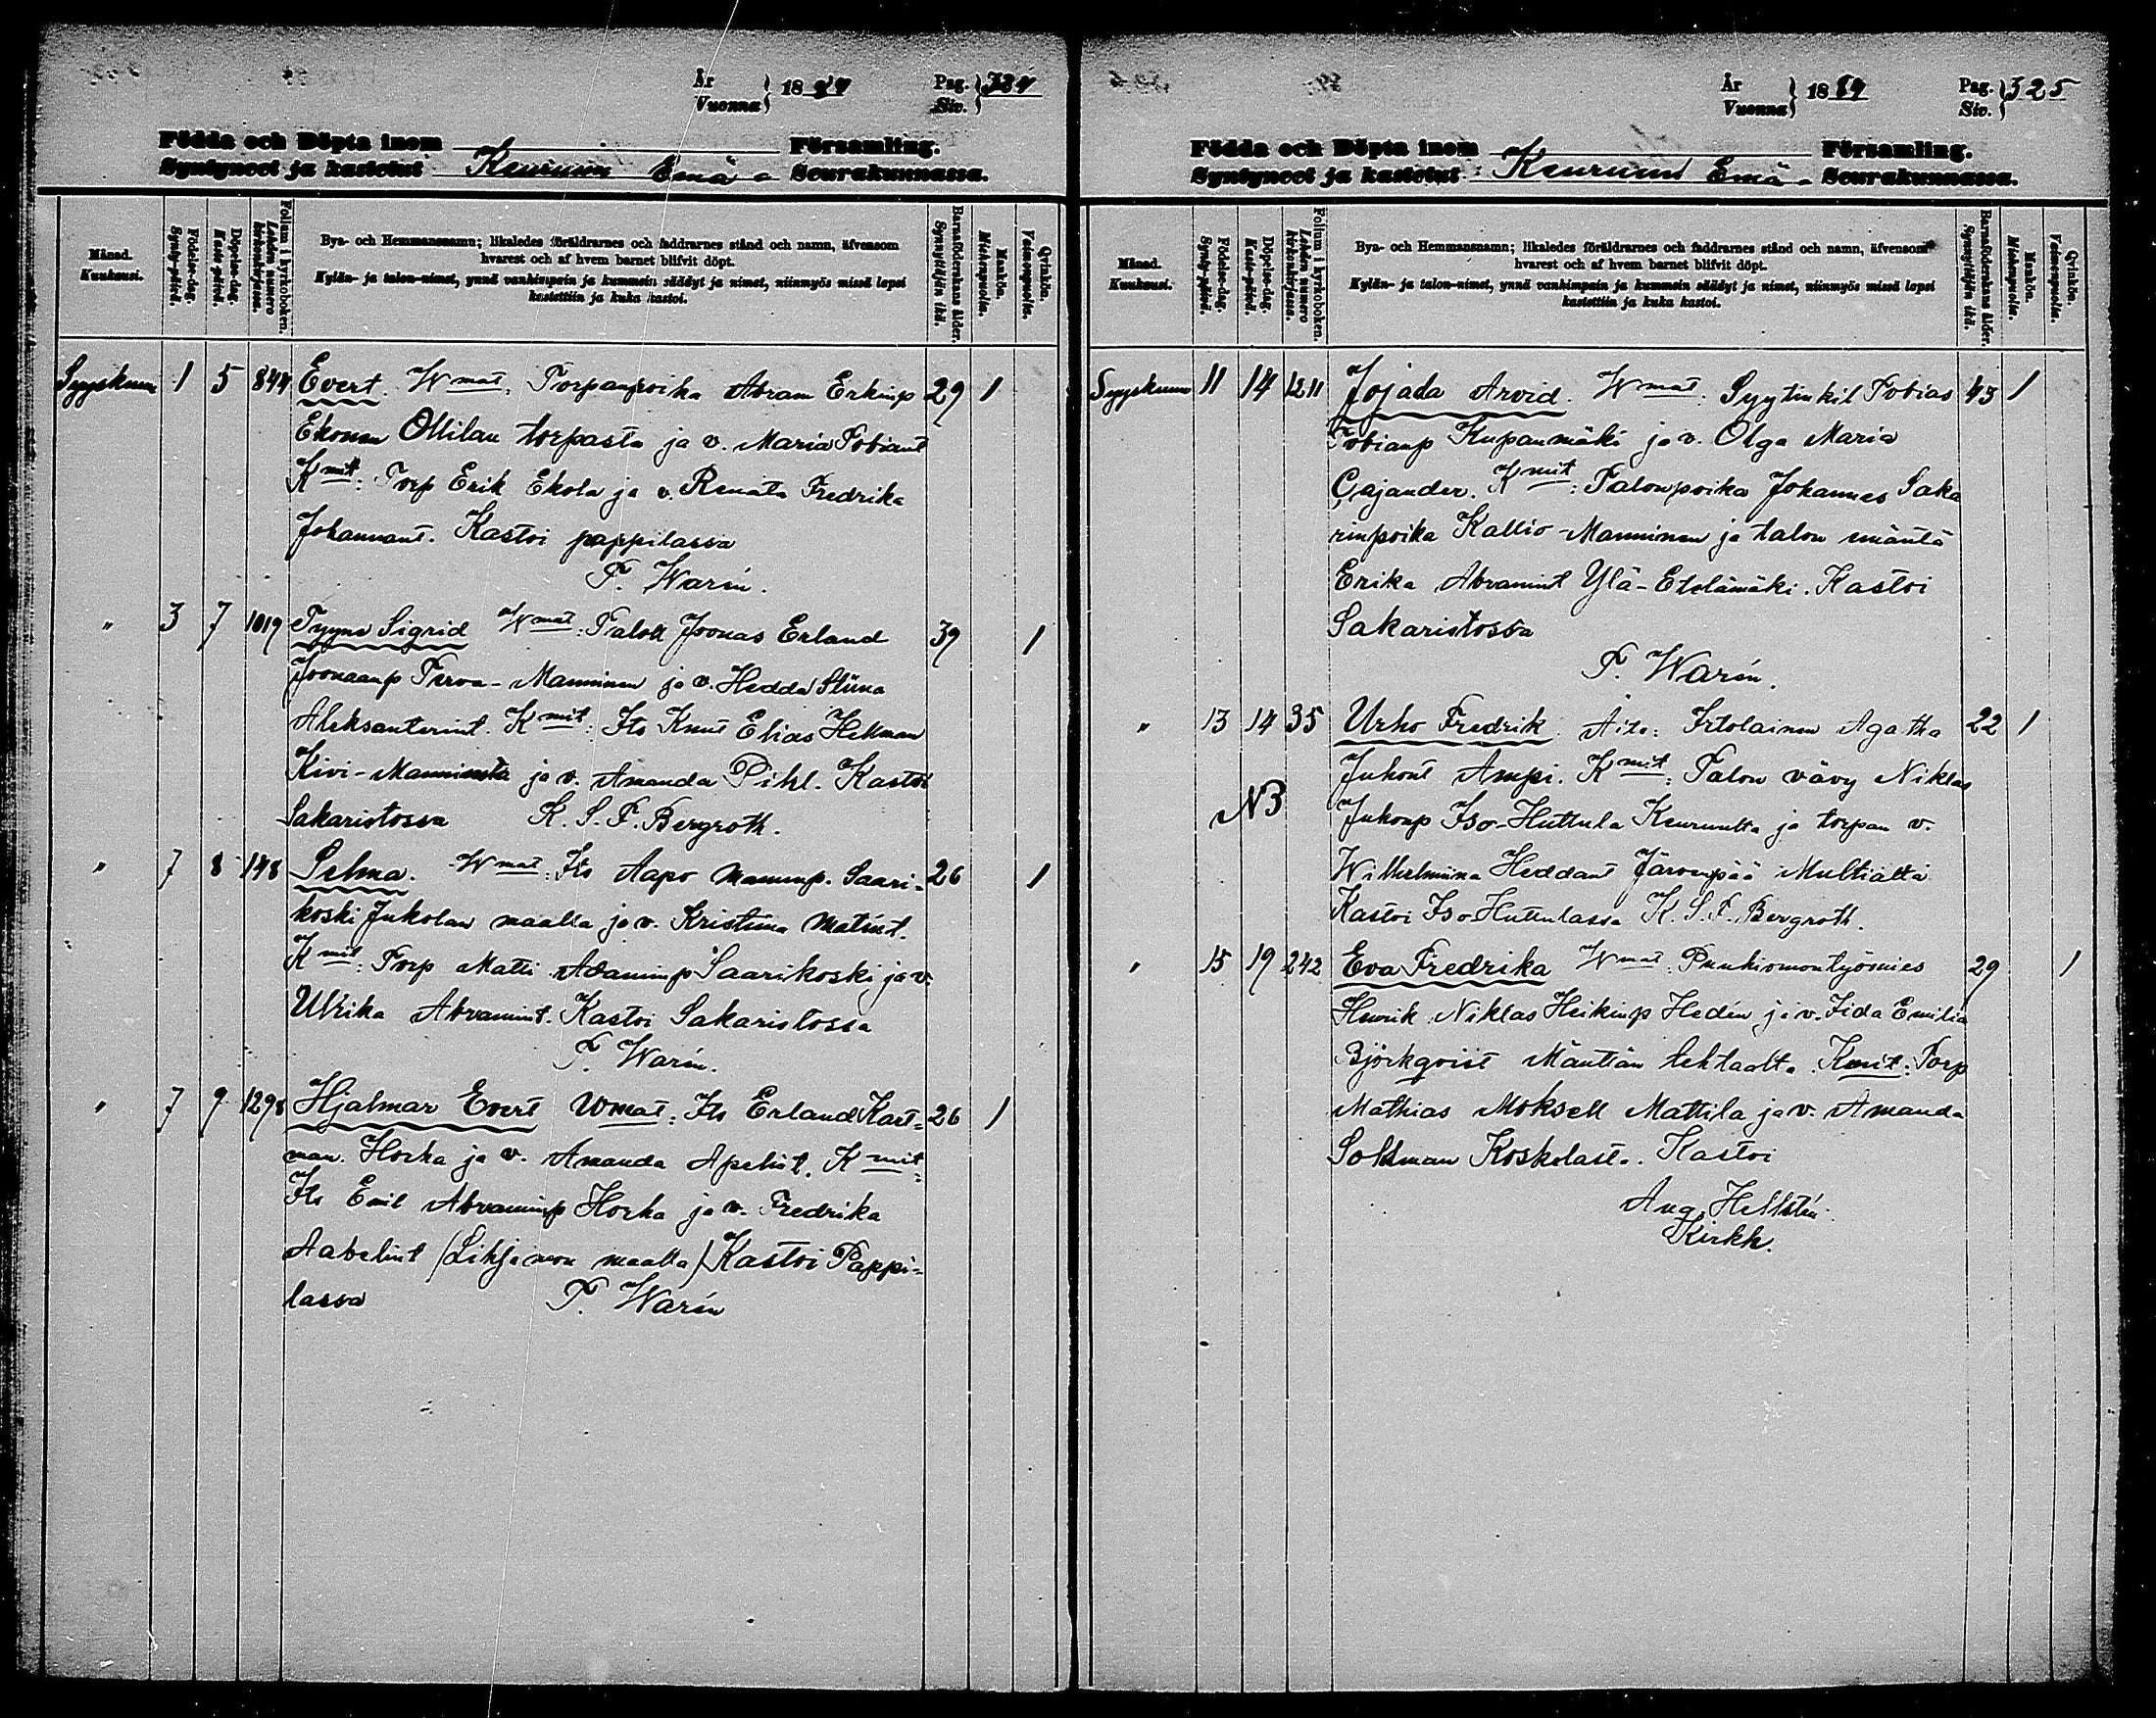 År
Vuonna } 1884
Pag.
Siv. } 324
Födda och Döpta inom Församling.
Syntyneet ja kastetut Keuruun Emä- Seurakunnassa.
Månad.
Kuukausi.
Födelse-dag.
Synty-päivä.
Döpelse-dag.
Kaste-päivä.
Folium i kyrkoboken.
Lehden numero
kirkonkirjassa.
Bya- och Hemmansnamn; likaledes föräldrarnes och faddrarnes stånd och namn, äfvensom
hvarest och af hvem barnet blifvit döpt.
Kylän- ja talon-nimet, ynnä vanhimpain ja kummein säädyt ja nimet, niinmyös missä lapsi
kastettiin ja kuka kastoi.
Barnaföderskans ålder.
Synnyttäjän ikä.
Mankön.
Miehenpuolia.
Qvinkön.
Vaimonpuolia.
Syyskuu 1 5 844 Evert. Wmat. Torpanpoika Abram Erkinp 29 1
Ekonen Ollilan torpasta ja v. Maria Tobiant
Kmit: Torp Erik Ekola ja v. Renata Fredrika
Johannant. Kastoi pappilassa
F. Warén.
" 3 7 1019 Tyyne Sigrid Wmat: Talok Joonas Erland 39 1
Joonaanp Terva-Manninen ja v. Hedda Stiina
Aleksanterint. Kmit: Its Knut Elias Hellman
Kivi-Mannisesta ja v. Amanda Pihl. Kastoi
Sakaristossa K. S. F. Bergroth.
" 7 8 148 Selma. Wmat: Its Aapo Manunp. Saari- 26 1
koski Jukolan maalla ja v. Kristiina Matint.
Kmit: Torp Matti Adaminp Saarikoski ja v.
Ulrika Abramint. Kastoi Sakaristossa
F. Warén.
" 7 9 1298 Hjalmar Evert Wmat: Its Erland Kart= 26 1
man. Horha ja v. Amanda Apelint. Kmit:
Its Emil Abraminp Horha ja v. Fredrika
Aabelint / maalla / Kastoi Pappi=
lassa F. Warén
År
Vuonna } 1884
Pag.
Siv. } 325
Födda och Döpta inom Församling.
Syntyneet ja kastetut Keuruun Emä- Seurakunnassa.
Månad.
Kuukausi.
Födelse-dag.
Synty-päivä.
Döpelse-dag.
Kaste-päivä.
Folium i kyrkoboken.
Lehden numero
kirkonkirjassa.
Bya- och Hemmansnamn; likaledes föräldrarnes och faddrarnes stånd och namn, äfvensom
hvarest och af hvem barnet blifvit döpt.
Kylän- ja talon-nimet, ynnä vanhimpain ja kummein säädyt ja nimet, niinmyös missä lapsi
kastettiin ja kuka kastoi.
Barnaföderskans ålder.
Synnyttäjän ikä.
Mankön.
Miehenpuolia.
Qvinkön.
Vaimonpuolia.
Syyskuu 11 14 1211 Jojada Arvid. Wmat: Syytinkil Tobias 43 1
Tobianp Kupanmäki ja v. Olga Maria
Cajander. Kmit: Talonpoika Johannes Saka
rinpoika Kallio-Manninen ja talon emäntä
Erika Abramint Ylä-Etelämäki. Kastoi
Sakaristossa
F. Warén.
" 13 14 35 Urho Fredrik. Äiti: Itolainen Agatha 22 1
Juhont Ampi. Kmit: Talon vävy Niklas
NB Juhonp Iso-Huttula Keuruulta ja torpan v.
Wilhelmiina Heddant Järvenpää Multialta
Kastoi Iso-Huttulassa K. S. F. Bergroth.
" 15 19 242 Eva Fredrika Wmat: Puuhiomontyömies 29 1
Henrik Niklas Heikinp Hedén ja v. Iida Emilia
Björkqvist Mäntän tehtaalta. Kmit: Torp
Mathias Moksell Mattila ja v. Amanda
Soldman Koskelast. Kastoi
Aug. Hellstén
Kirkh.